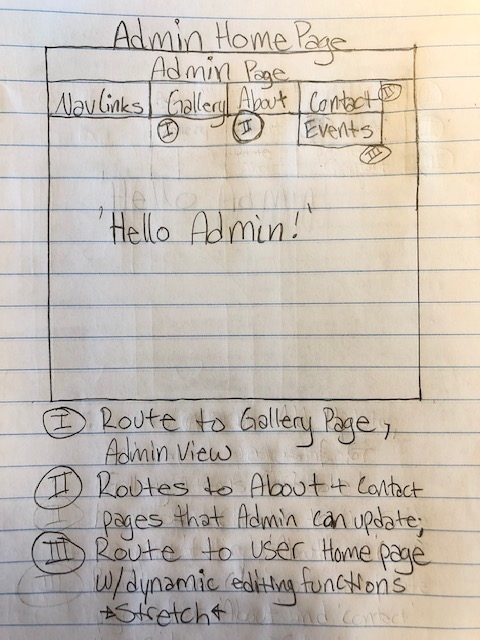 Admin Home Page
Admin Page
NavLinks Gallery About Contact II
I II Events
III
'Hello Admin!'
I Route to Gallery Page,
Admin View
II Routes to About + Contact
pages that Admin can update;
III Route to user Home page
w/dynamic editing functions
→Stretch←